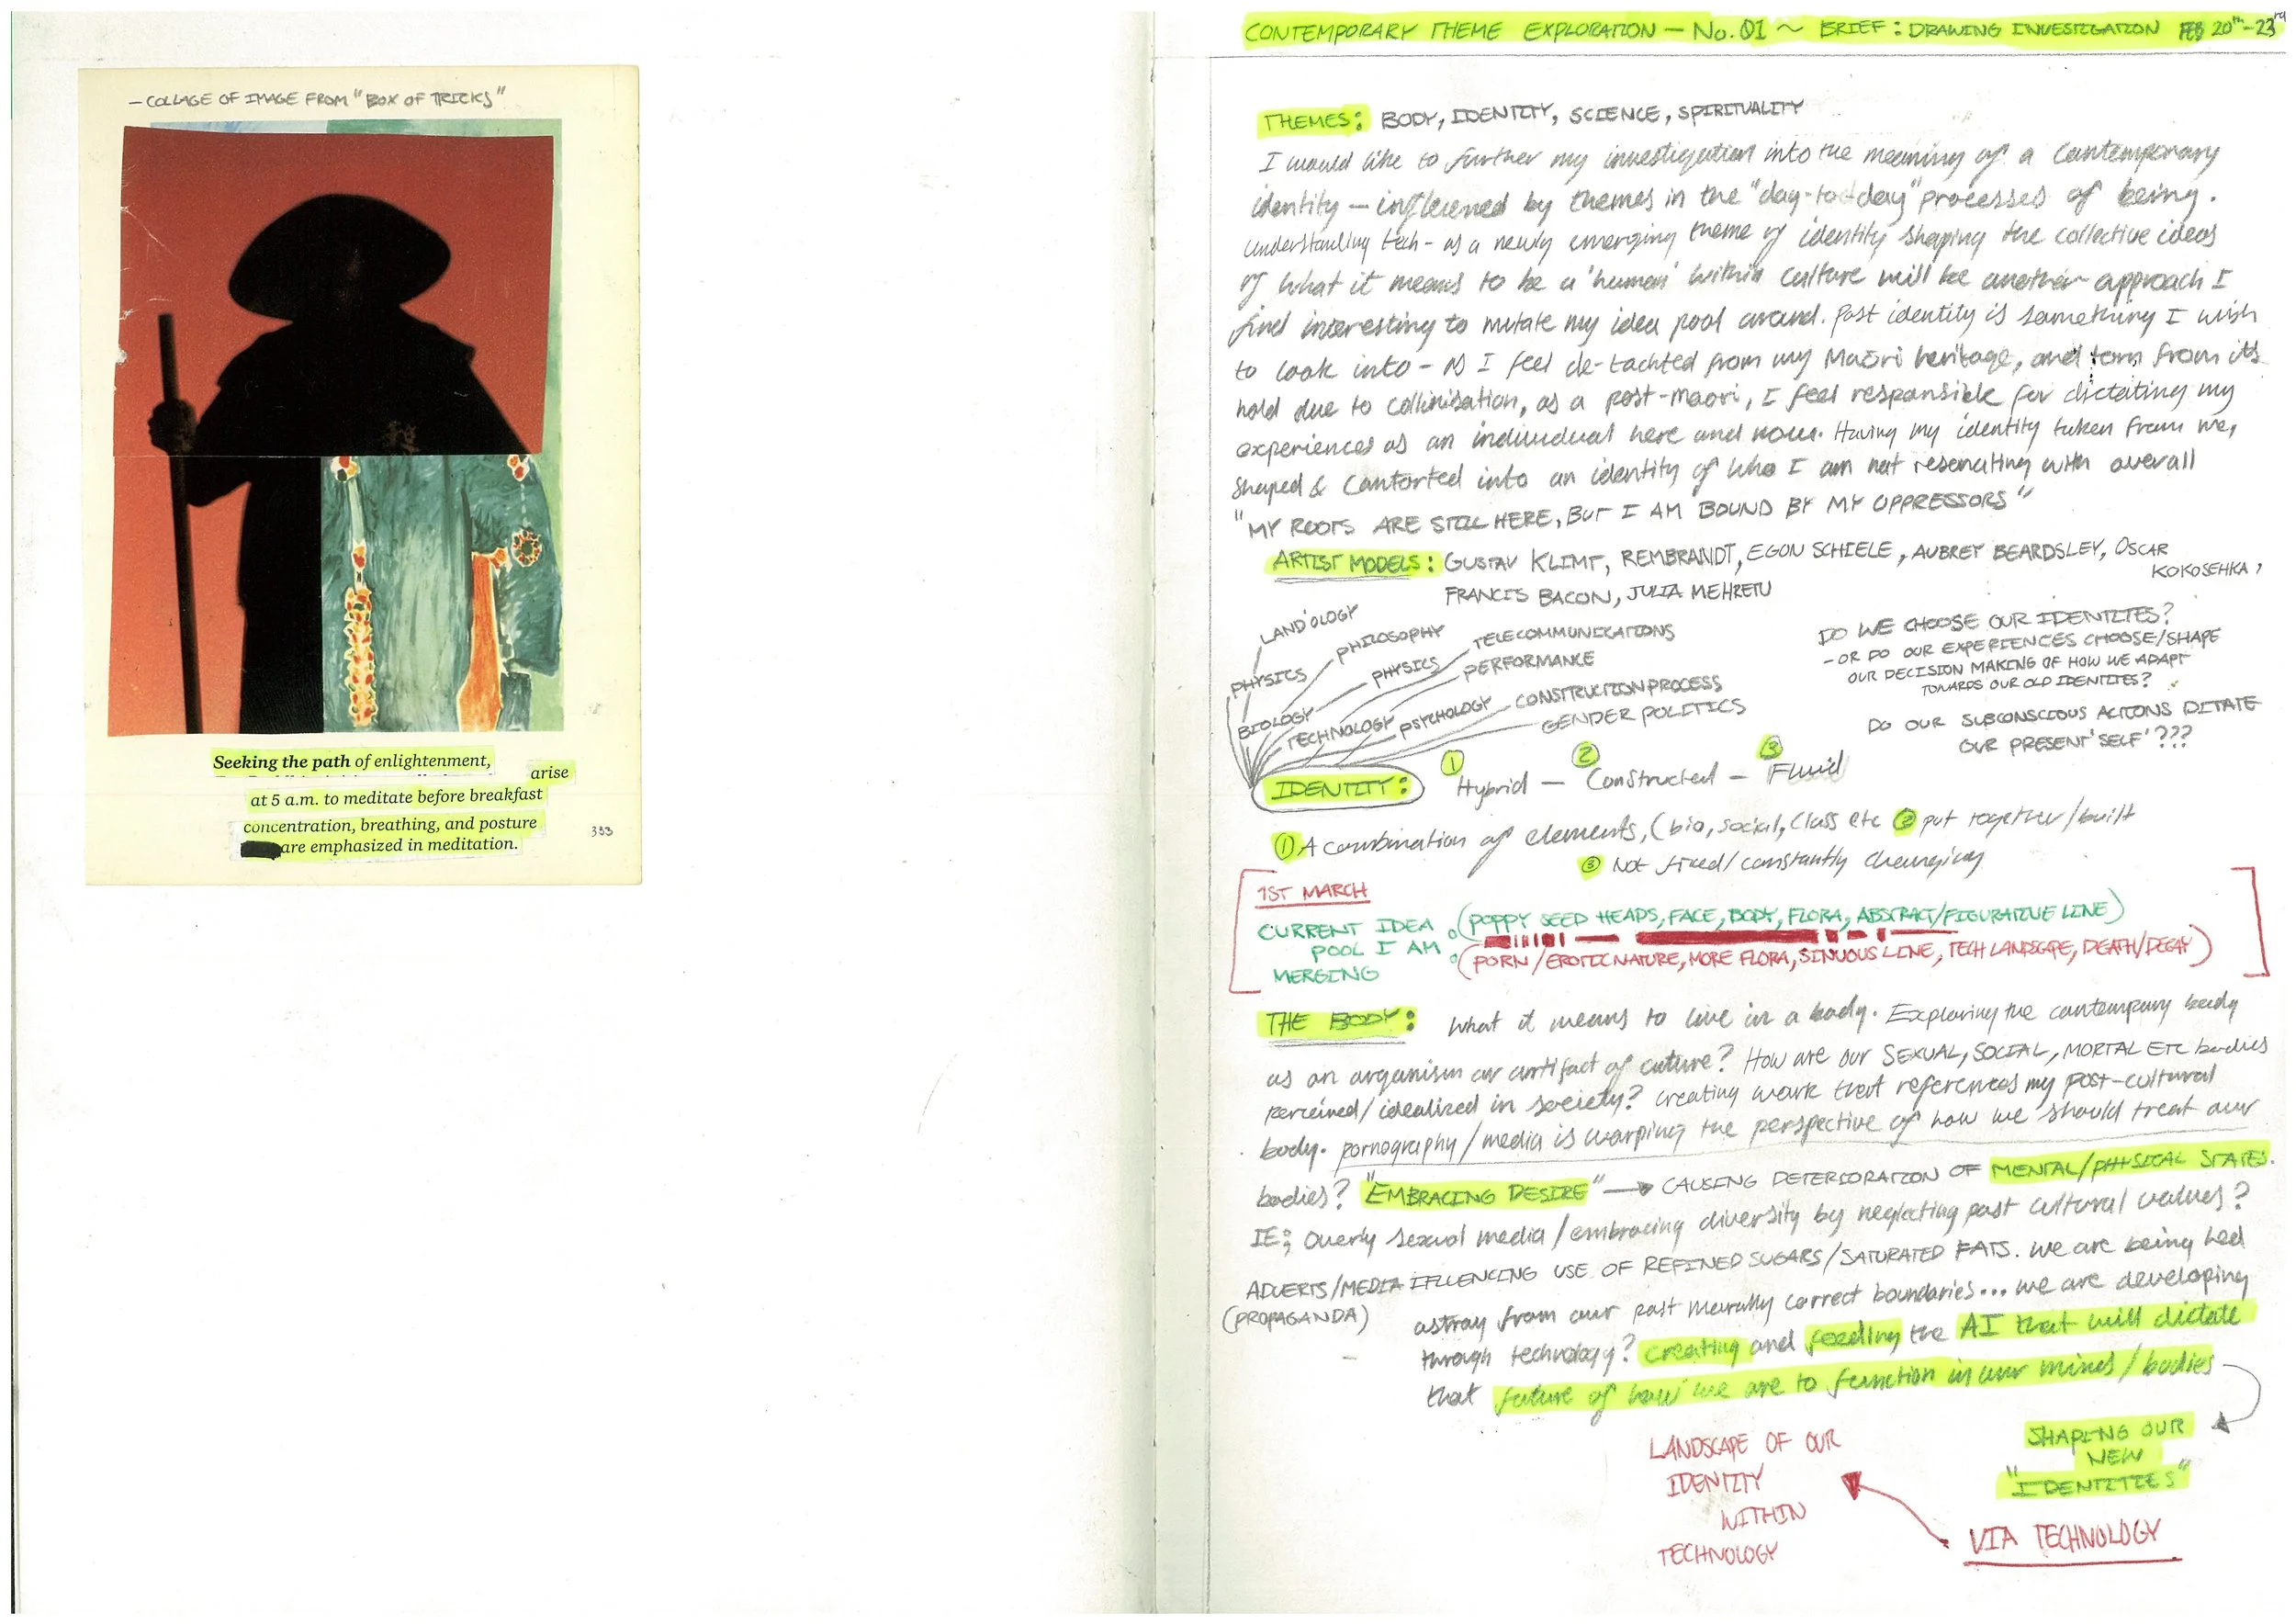 — COLLAGE OF IMAGE FROM "BOX OF TRICKS"
Seeking the path of enlightenment,
arise
at 5 a.m. to meditate before breakfast
concentration, breathing, and posture
are emphasized in meditation.
333
CONTEMPORARY THEME EXPLORATION — No. 01 ~ BRIEF: DRAWING INVESTIGATION FEB 20th-23rd
THEMES: BODY, IDENTITY, SCIENCE, SPIRITUALITY
I would like to further my investigation into the meaning of a contemporary
identity — influened by themes in the "day-to-day" processes of being.
understanding tech - as a newly emerging theme of identity shaping the collective ideas
of what it means to be a 'human' within culture will be another approach I
find interesting to mutate my idea pool around. Past identity is something I wish
to look into - as I feel de-tachted from my Maori heritage, and torn from its
hold due to collinisation, as a post-maori, I feel responsible for dictating my
experiences as an individual here and now. Having my identity taken from me,
shaped & contorted into an identity of who I am not resonating with overall
"MY ROOTS ARE STILL HERE, BUT I AM BOUND BY MY OPPRESSORS"
ARTIST MODELS: GUSTAV KLIMT, REMBRANDT, EGON SCHIELE, AUBREY BEARDSLEY, OSCAR
KOKOSEHKA,
FRANCIS BACON, JULIA MEHRETU
LAND'OLOGY
PHILOSOPHY
TELECOMMUNICATIONS
PHYSICS
PHYSICS
PERFORMANCE
BIOLOGY
TECHNOLOGY
PSYCHOLOGY
CONSTRUCTION PROCESS
GENDER POLITICS
DO WE CHOOSE OUR IDENTITES?
- OR DO OUR EXPERIENCES CHOOSE/SHAPE
OUR DECISION MAKING OF HOW WE ADAPT
TOWARDS OUR OLD IDENTITES?
DO OUR SUBCONSCIOUS ACITONS DITATE
OUR PRESENT 'SELF'???
IDENTITY: 1 Hybrid — 2 Constructed — 3 Fluid
1 A combination of elements, (bio, social, class etc 2 put together/built
3 Not fixed/constantly changing
1ST MARCH
CURRENT IDEA POOL I AM MERGING
(POPPY SEED HEADS, FACE, BODY, FLORA, ABSTRACT/FIGURATIVE LINE)
(PORN/EROTIC NATURE, MORE FLORA, SINUOUS LINE, TECH LANDSCAPE, DEATH/DECAY)
THE BODY: What it means to live in a body. Exploring the contempary body
as an organism or artifact of cuture? How are our SEXUAL, SOCIAL, MORTAL ETC bodies
perceived/idealized in society? creating work that references my post-cultural
body. pornography/media is warping the perspective of how we should treat our
bodies? "EMBRACING DESIRE" → CAUSING DETERIORATION OF MENTAL/PHYSICAL STATES.
IE; Overly sexual media/embracing diversity by neglecting past cultural values?
ADVERTS/MEDIA IFLUENCING USE OF REFINED SUGARS/SATURATED FATS. We are being led
(PROPAGANDA) astray from our past morally correct boundaries... we are developing
through technology? Creating and feeding the AI that will dictate
that future of how we are to function in our minds/bodies
SHAPING OUR
NEW
"IDENTITIES"
LANDSCAPE OF OUR
IDENTITY
WITHIN
TECHNOLOGY
VIA TECHNOLOGY